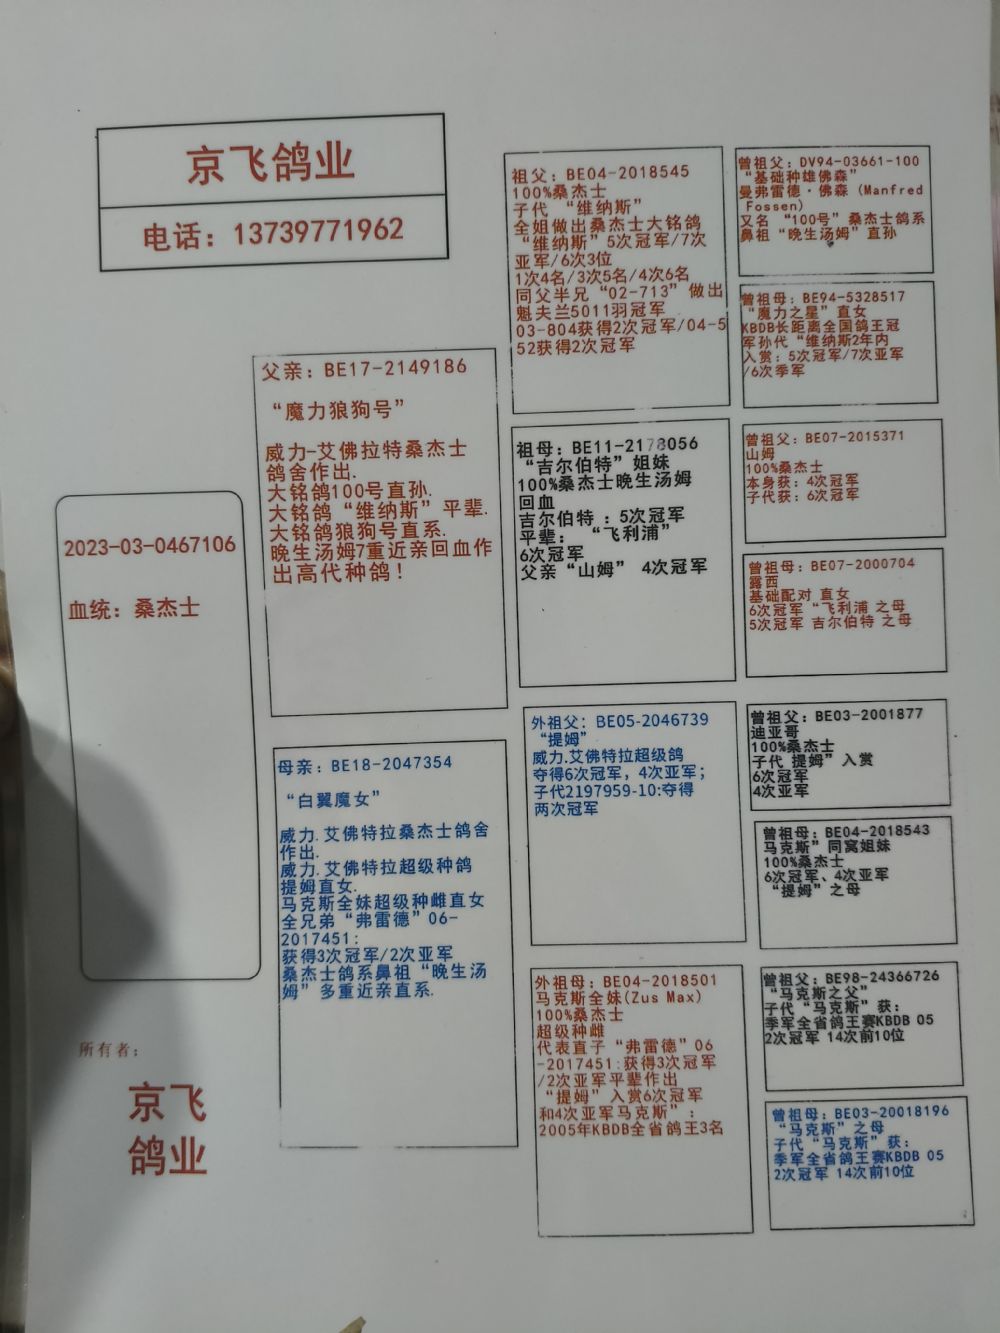 京飞鸽业
电话：13739771962
2023-03-0467106
血统：桑杰士
所有者：
京飞
鸽业
父亲：BE17-2149186
“魔力狼狗号”
威力-艾佛拉特桑杰士
鸽舍作出.
大铭鸽100号直孙.
大铭鸽“维纳斯”平辈.
大铭鸽狼狗号直系.
晚生汤姆7重近亲回血作
出高代种鸽！
母亲：BE18-2047354
“白翼魔女”
威力.艾佛特拉桑杰士鸽舍
作出.
威力.艾佛特拉超级种鸽
提姆直女.
马克斯全妹超级种雌直女
全兄弟“弗雷德”06-
2017451：
获得3次冠军/2次亚军
桑杰士鸽系鼻祖“晚生汤
姆”多重近亲直系.
祖父：BE04-2018545
100%桑杰士
子代 “维纳斯”
全姐做出桑杰士大铭鸽
“维纳斯”5次冠军/7次
亚军/6次3位
1次4名/3次5名/4次6名
同父半兄“02-713”做出
魁夫兰5011羽冠军
03-804获得2次冠军/04-5
52获得2次冠军
祖母：BE11-2178056
“吉尔伯特”姐妹
100%桑杰士晚生汤姆
回血
吉尔伯特 ：5次冠军
平辈： “飞利浦”
6次冠军
父亲“山姆” 4次冠军
外祖父：BE05-2046739
“提姆”
威力.艾佛特拉超级鸽
夺得6次冠军，4次亚军；
子代2197959-10:夺得
两次冠军
外祖母：BE04-2018501
马克斯全妹(Zus Max)
100%桑杰士
超级种雌
代表直子“弗雷德”06
-2017451:获得3次冠军
/2次亚军平辈作出
“提姆”入赏6次冠军
和4次亚军马克斯”：
2005年KBDB全省鸽王3名
曾祖父：DV94-03661-100
“基础种雄佛森”
曼弗雷德·佛森（Manfred
Fossen)
又名 “100号”桑杰士鸽系
鼻祖“晚生汤姆”直孙
曾祖母：BE94-5328517
“魔力之星”直女
KBDB长距离全国鸽王冠
军孙代“维纳斯2年内
入赏：5次冠军/7次亚军
/6次季军
曾祖父：BE07-2015371
山姆
100%桑杰士
本身获：4次冠军
子代获：6次冠军
曾祖母：BE07-2000704
露西
基础配对 直女
6次冠军“飞利浦 之母
5次冠军 吉尔伯特 之母
曾祖父：BE03-2001877
迪亚哥
100%桑杰士
子代 提姆”入赏
6次冠军
4次亚军
曾祖母：BE04-2018543
马克斯”同窝姐妹
100%桑杰士
6次冠军、4次亚军
“提姆”之母
曾祖父：BE98-24366726
“马克斯之父”
子代“马克斯”获：
季军全省鸽王赛KBDB 05
2次冠军 14次前10位
曾祖母：BE03-20018196
“马克斯”之母
子代“马克斯”获：
季军全省鸽王赛KBDB 05
2次冠军 14次前10位